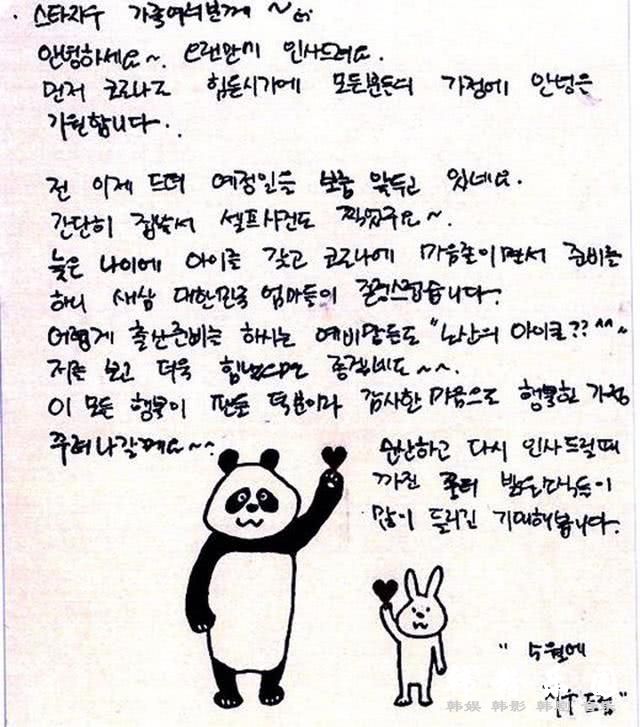 스타지우 가족여러분께 ~
안녕하세요~. 오랜만에 인사드려요.
먼저 코로나로 힘든시기에 모든분들의 가정에 안녕을
기원합니다..
전 이제 드뎌 예정일을 보름 앞두고 있네요.
간단히 집앞서 셀프사진도 찍었구요~.
늦은 나이에 아이를 갖고 코로나에 마음졸이면서 준비를
하니 새삼 대한민국 엄마들이 존경스럽습니다.
어렵게 출산준비를 하시는 예비맘들도 "노산의 아이콘?? ^^"
저를 보고 더욱 힘냈으면 좋겠네요~~.
이 모든 행복이 팬들 덕분이라 감사한 마음으로 행복한 가정
꾸려 나갈께요~~
순산하고 다시 인사드릴때
까진 밝은소식들이
많이 들리길 기대해봅니다.
" 5월에
지우드림 "
韩娱 韩影 韩剧